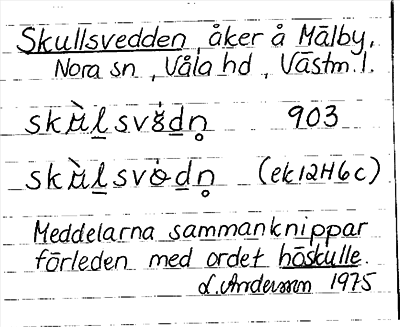 Skullsvedden, åker å Mälby,
Nora sn, Våla hd, Västm. l.
903
(ek 12H6c)
Meddelarna sammanknippar
förleden med ordet höskulle.
L. Andersson 1975